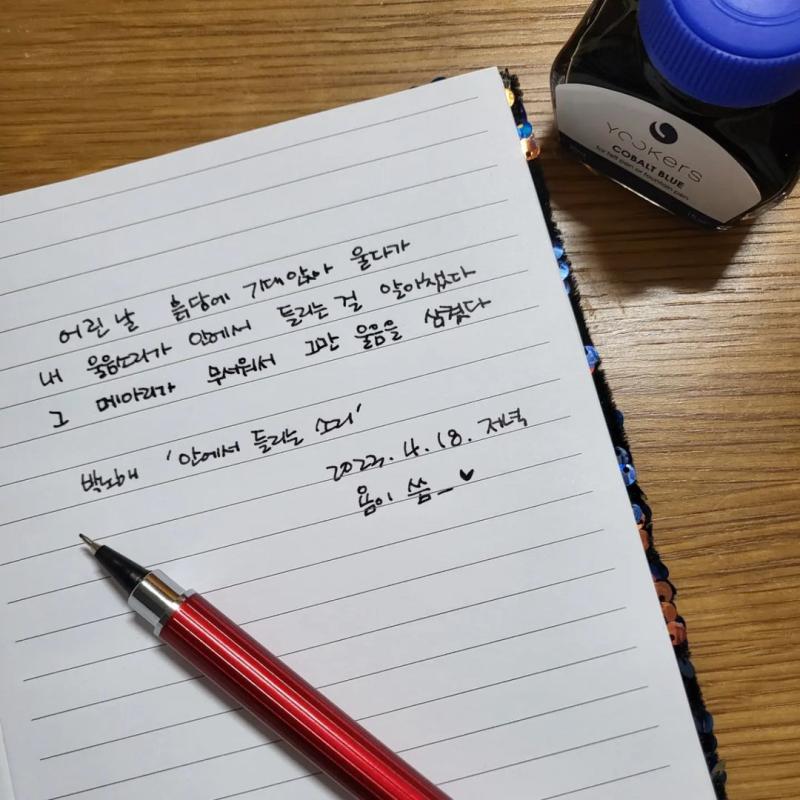 어린 날 흙담에 기대앉아 울다가
내 울음소리가 안에서 들리는 걸 알아챘다
그 메아리가 무서워서 그만 울음을 삼켰다
박노해 '안에서 들리는 소리'
2023. 4. 18. 저녁
욤이 씀_♥
YOOKERS
COBALT BLUE
for felt pen or fountain pen